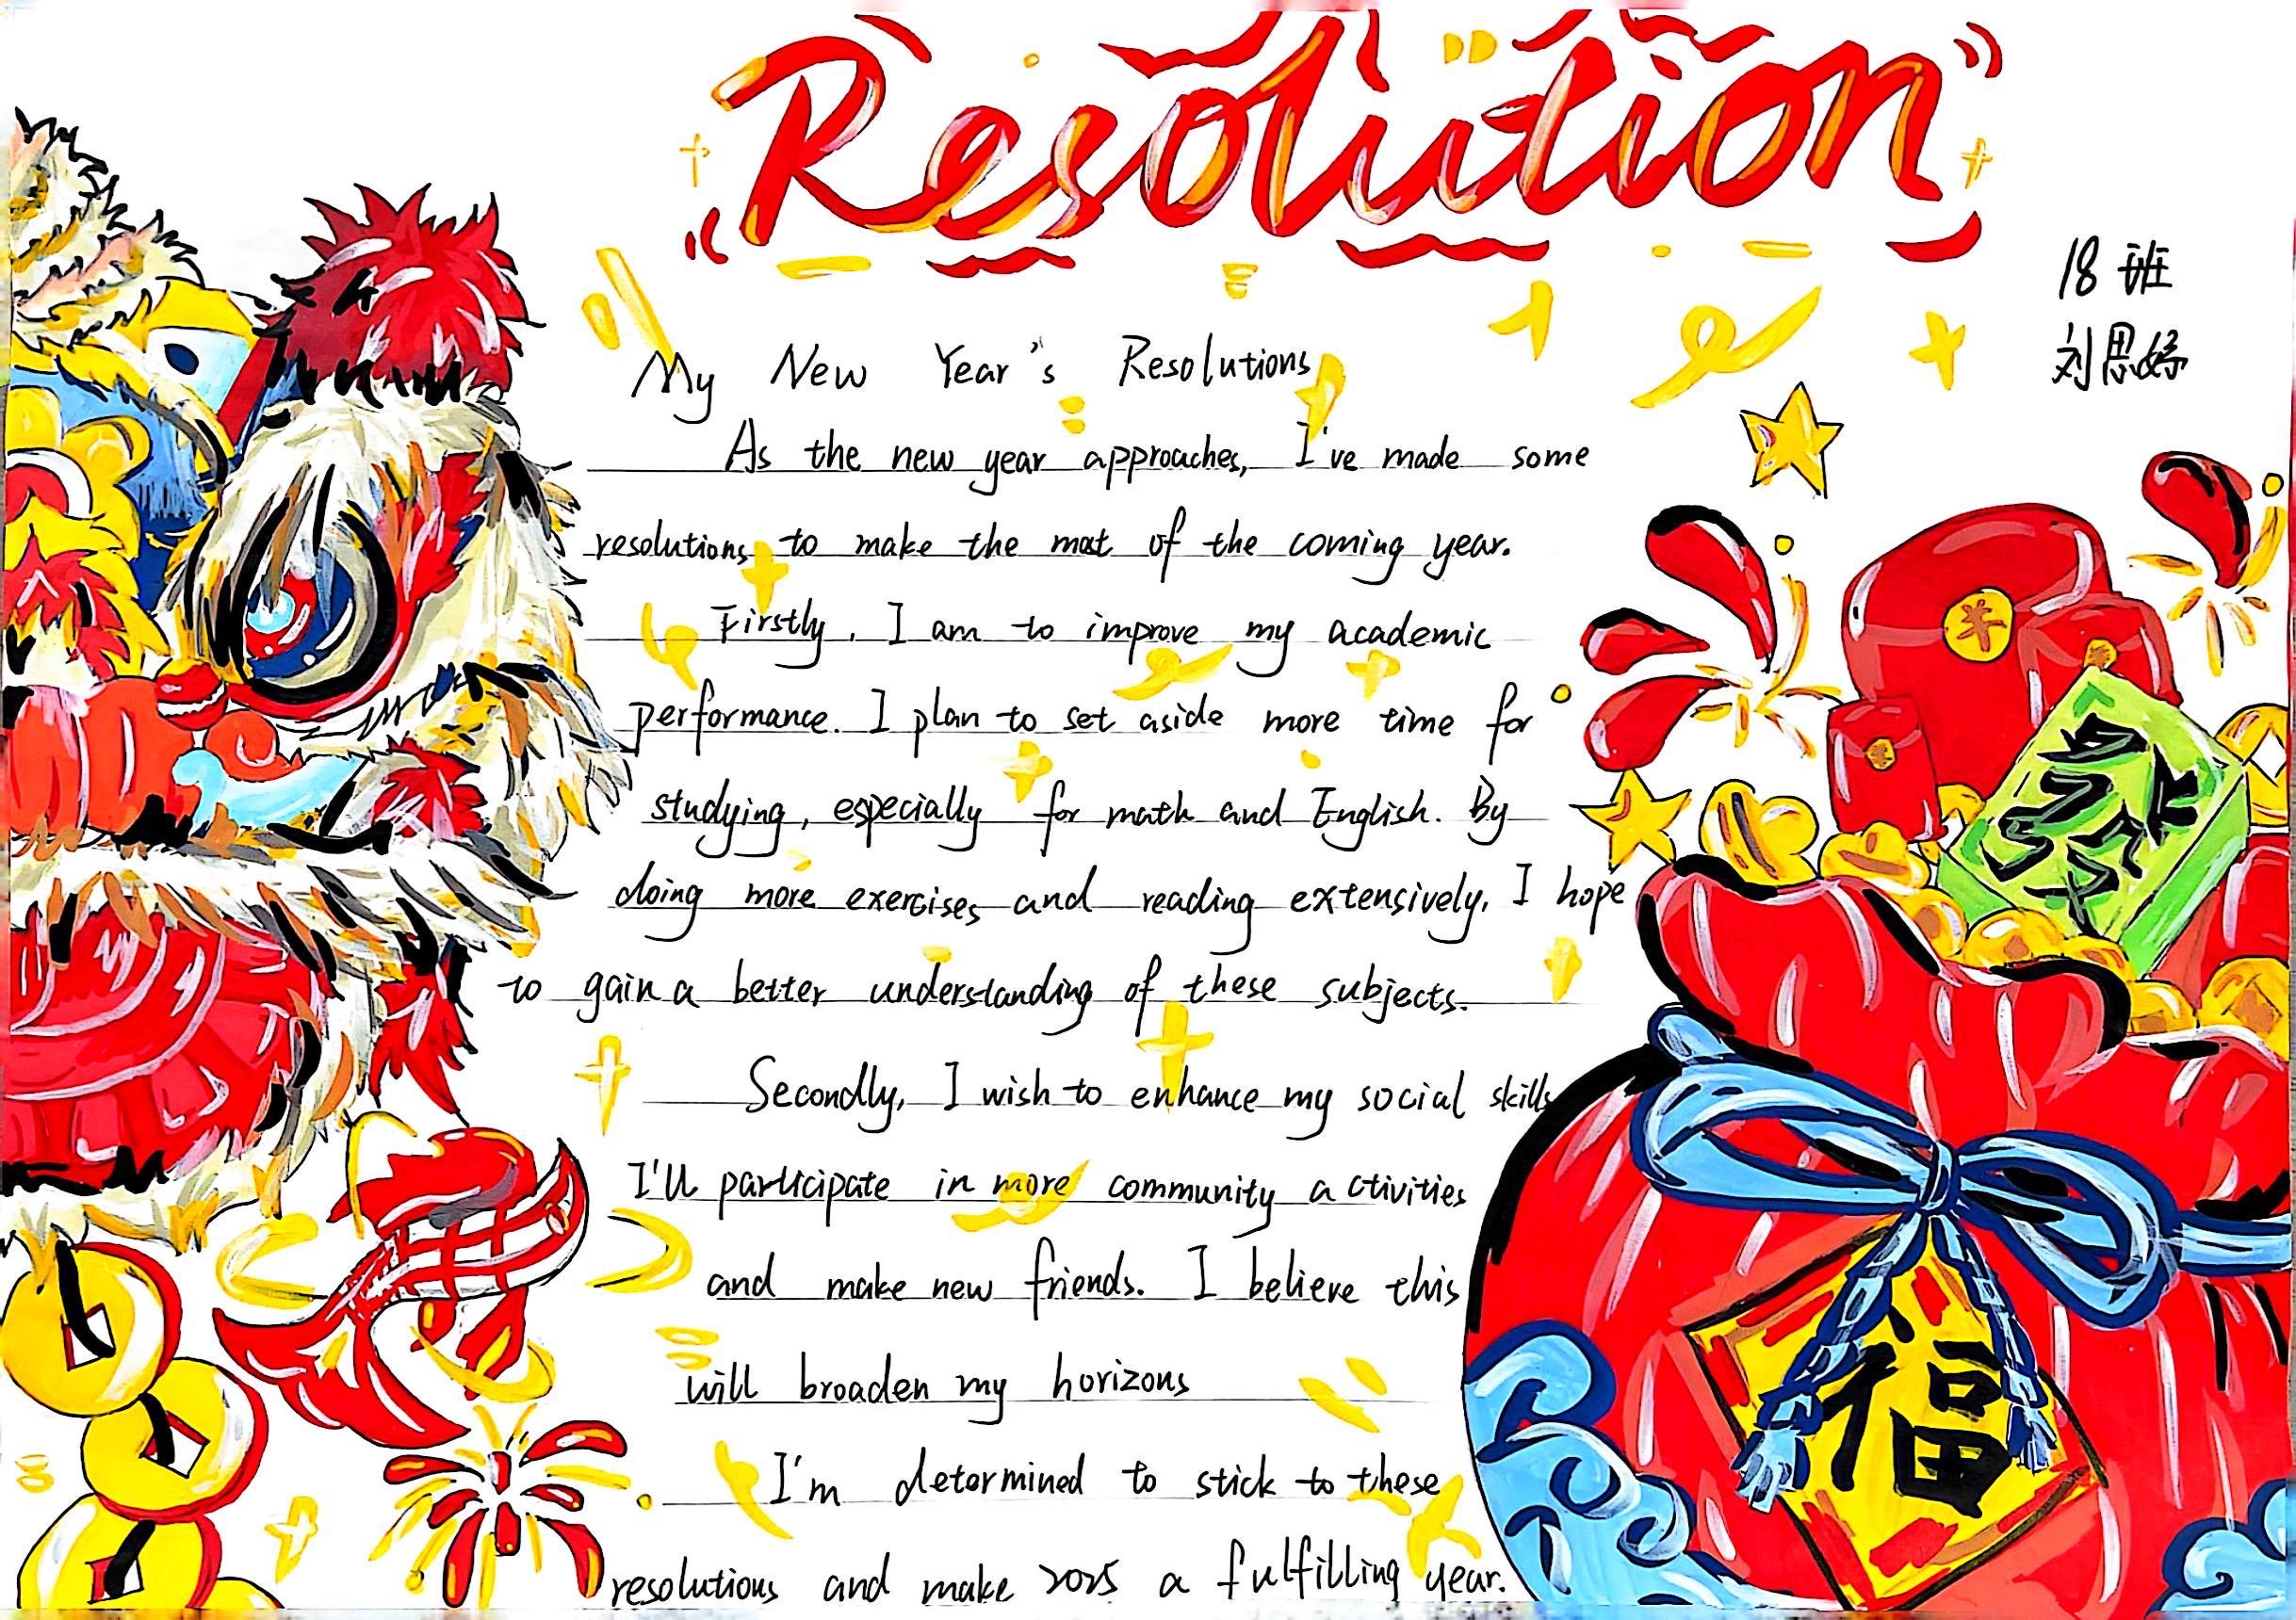 Resolution
18班
刘思妤
My New Year's Resolutions
As the new year approaches, I've made some
resolutions to make the most of the coming year.
Firstly, I am to improve my academic
performance. I plan to set aside more time for
studying, especially for math and English. By
doing more exercises and reading extensively, I hope
to gain a better understanding of these subjects.
Secondly, I wish to enhance my social skills
I'll participate in more community activities
and make new friends. I believe this
will broaden my horizons
I'm determined to stick to these
resolutions and make 2025 a fulfilling year.
發
福